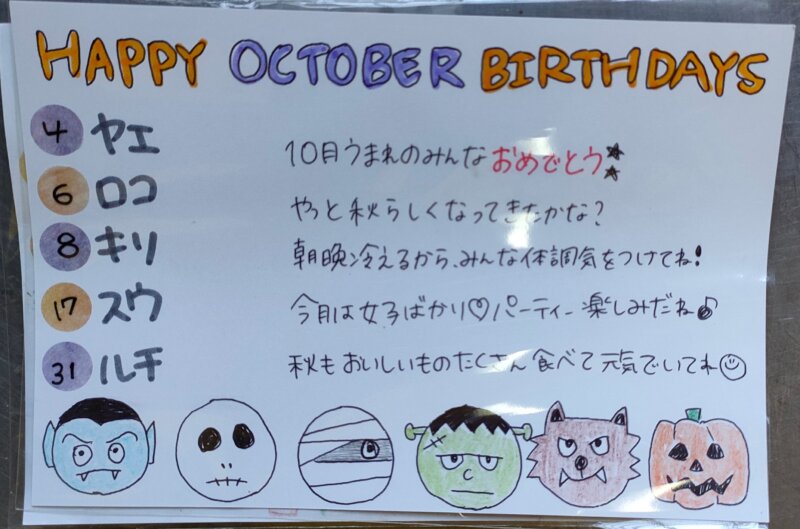 HAPPY OCTOBER BIRTHDAYS
4 ヤエ
6 ロコ
8 キリ
17 スウ
31 ルチ
10月うまれのみんな おめでとう★★
やっと秋らしくなってきたかな?
朝晩冷えるから、みんな体調気をつけてね!
今月は女子ばかり♡パーティー楽しみだね♪
秋もおいしいものたくさん食べて元気でいてね☺